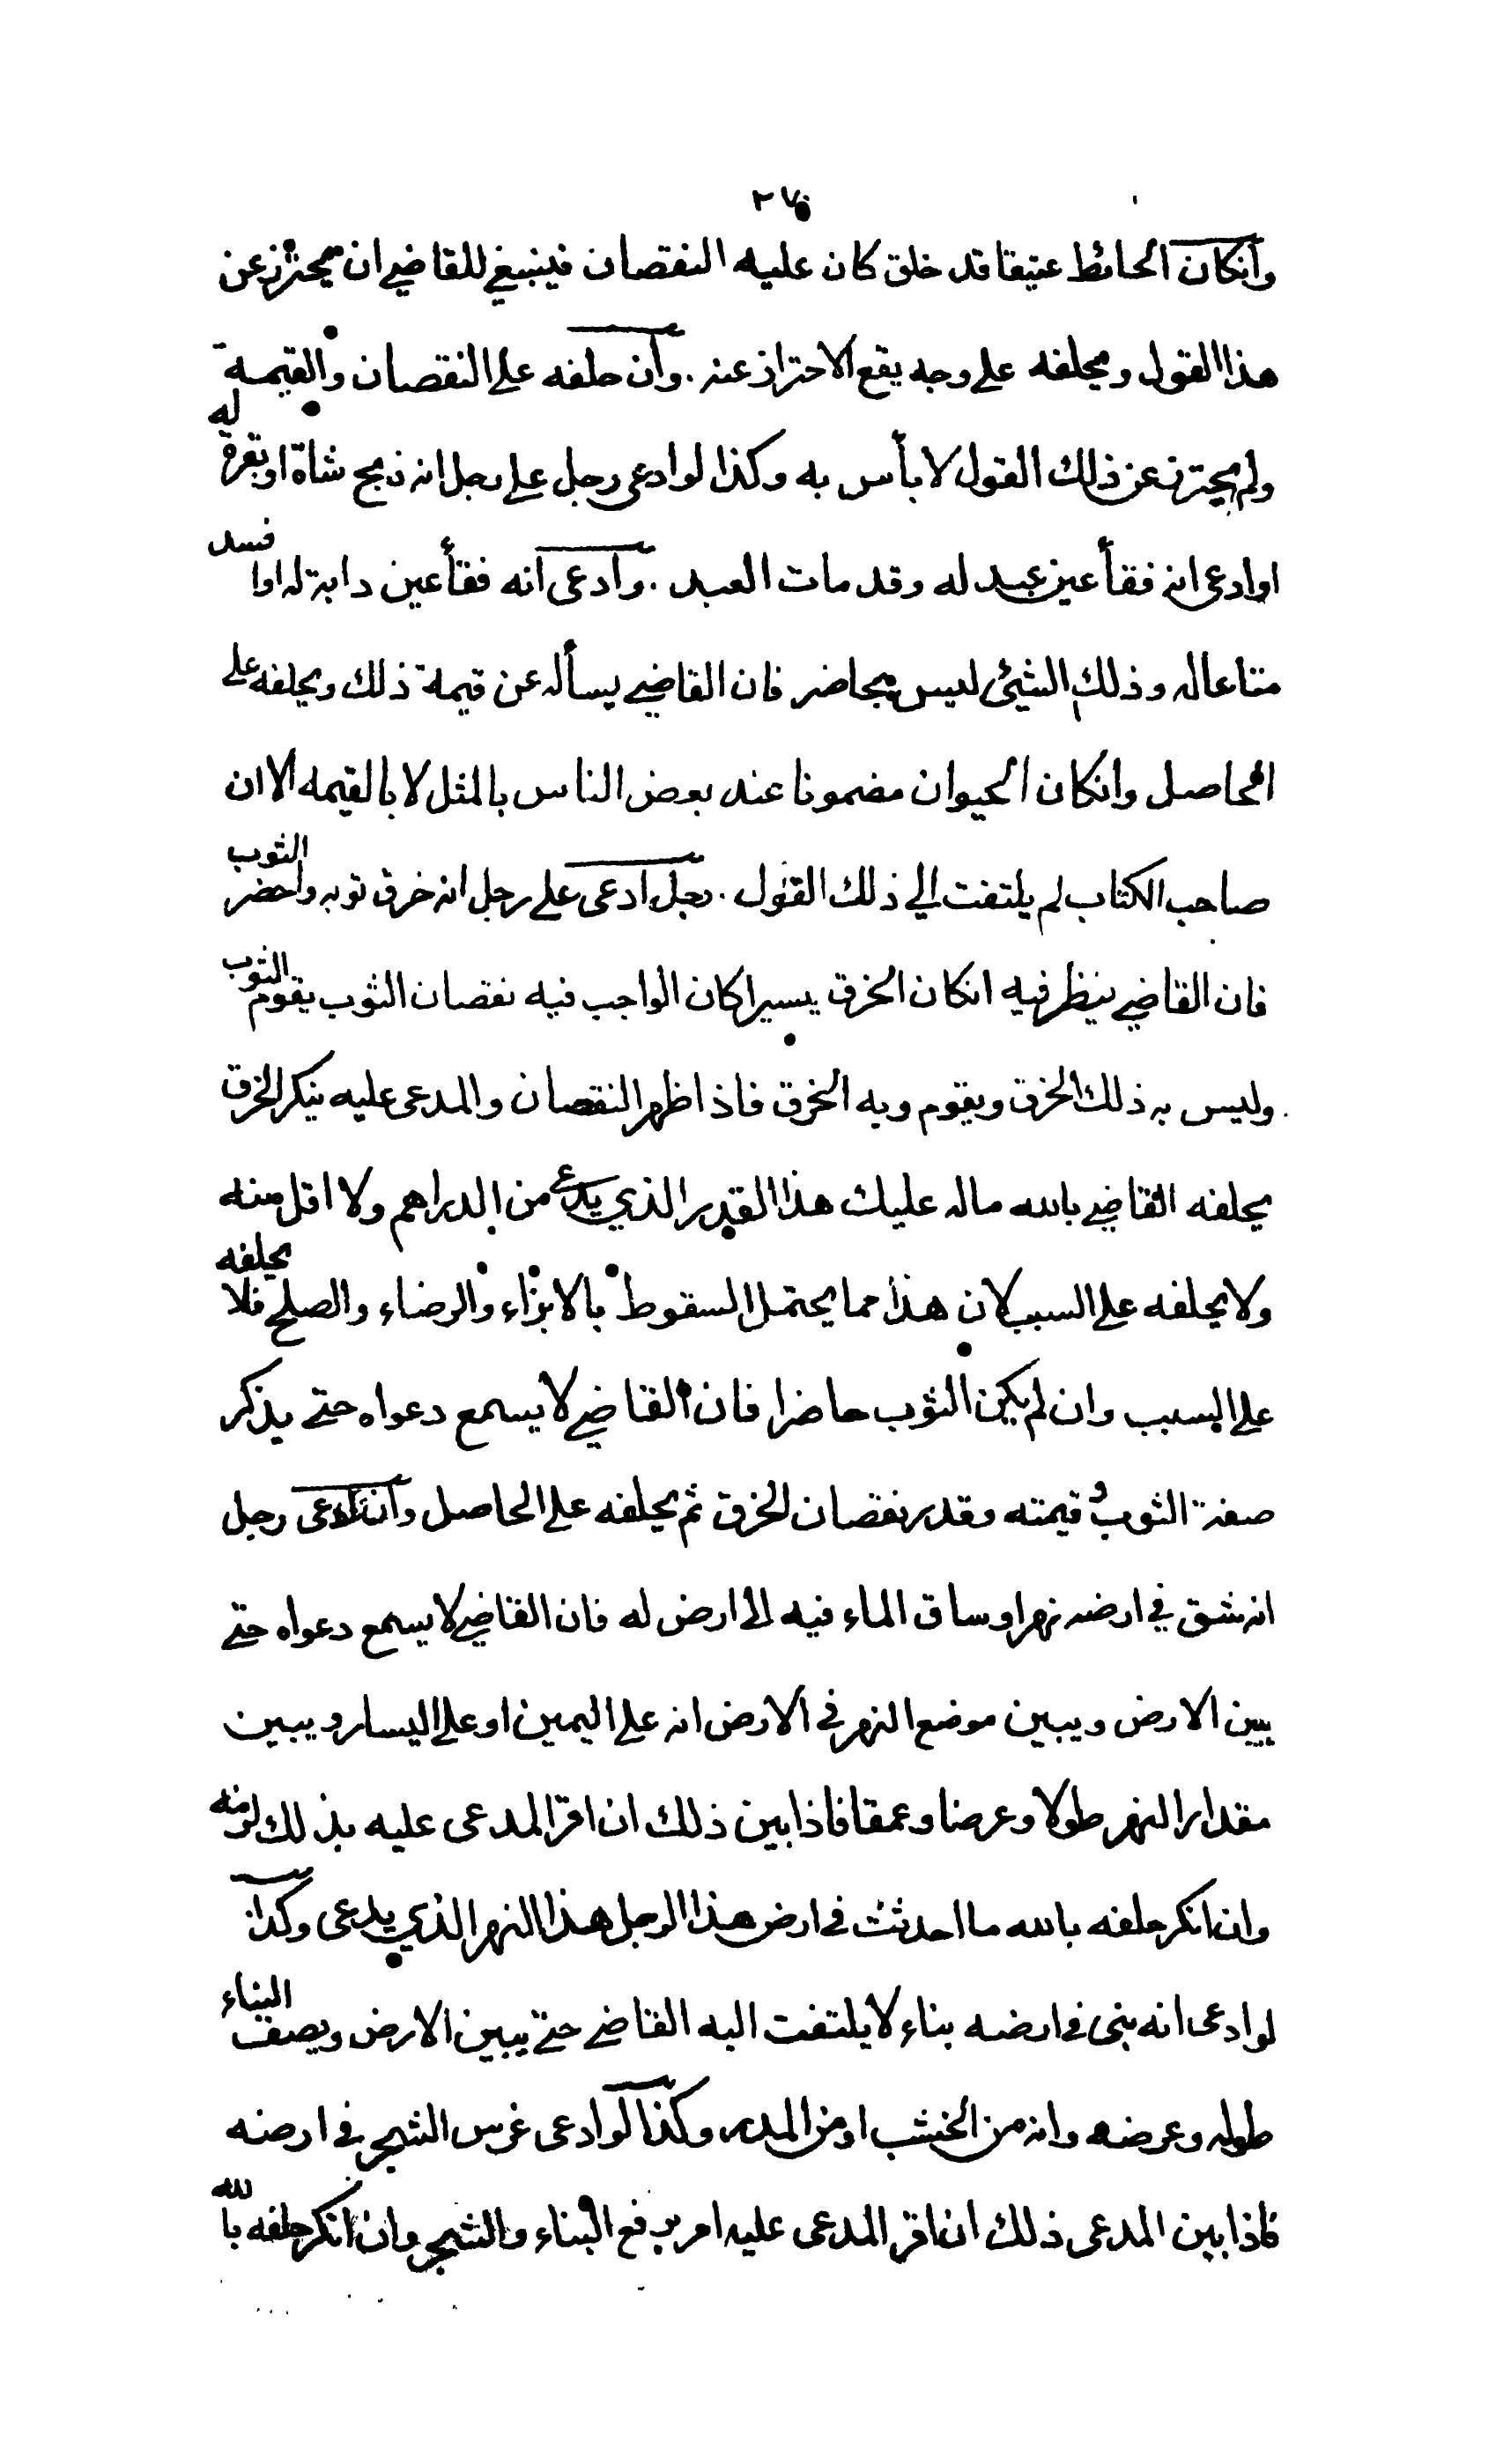 ٢٧٥
وانكان الحائط عتيقا قد خلق كان عليه النقصان فينبغي للقاضي ان يحترز عن
هذا القول ويحلفه على وجه يقع الاحتراز عنه . وان حلفه على النقصان والقيمة
ولم يحترز عن ذلك القول لا بأس به وكذا لو ادعى رجل على رجل انه ذبح شاة او بقرة له
او ادعى انه فقأ عين عبد له وقد مات العبد . وادعى انه فقأ عين دابة له او افسد
متاعا له وذلك الشيئ ليس بحاضر فان القاضي يسأله عن قيمة ذلك ويحلفه على
الحاصل وانكان الحيوان مضمونا عند بعض الناس بالمثل لا بالقيمه الا ان
صاحب الكتاب لم يلتفت الي ذلك القول . رجل ادعى على رجل انه خرق ثوبه واحضر الثوب
فان القاضي ينظر فيه انكان الخرق يسيرا كان الواجب فيه نقصان الثوب يقوم الثوب
وليس به ذلك الخرق ويقوم وبه الخرق فاذا ظهر النقصان والمدعى عليه ينكر الخرق
يحلفه القاضي بالله ماله عليك هذا القدر الذي يدعي من الدراهم ولا اقل منه
ولا يحلفه على السبب لان هذا مما يحتمل السقوط بالابراء والرضاء والصلح فلا يحلفه
على السبب وان لم يكن الثوب حاضرا فان القاضي لا يسمع دعواه حتى يذكر
صفة الثوب و قيمته وقدر نقصان الخرق ثم يحلفه على الحاصل وان ادعى رجل
انه شق في ارضه نهرا وساق الماء فيه الى ارض له فان القاضي لا يسمع دعواه حتى
يبين الارض ويبين موضع النهر في الارض انه على اليمين او على اليسار ويبين
مقدار النهر طولا وعرضا وعمقا فاذا بين ذلك ان اقر المدعى عليه بذلك لزمه
وان انكر حلفه بالله ما احدثت في ارض هذا الرجل هذا النهر الذي يدعى وكذا
لو ادعى انه بنى في ارضه بناء لا يلتفت اليه القاضي حتى يبين الارض ويصف البناء
طوله وعرضه وانه من الخشب او من المدر وكذا لو ادعى غرس الشجر في ارضه
فاذا بين المدعى ذلك ان اقر المدعى عليه امر برفع البناء والشجر وان انكر حلفه بالله